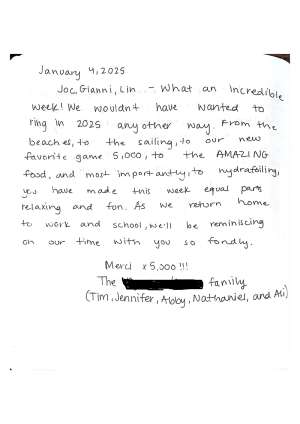 January 4, 2025
Joe, Gianni, Lin - What an incredible
week! We wouldnt have wanted to
ring in 2025 any other way. From the
beaches, to the sailing, to our new
favorite game 5,000, to the AMAZING
food, and most importantly, to hydrafoiling,
you have made this week equal parts
relaxing and fun. As we return home
to work and school, we'll be reminiscing
on our time with you so fondly.
Merci x 5,000 !!!
The family
(Tim, Jennifer, Abby, Nathaniel, and Ali)